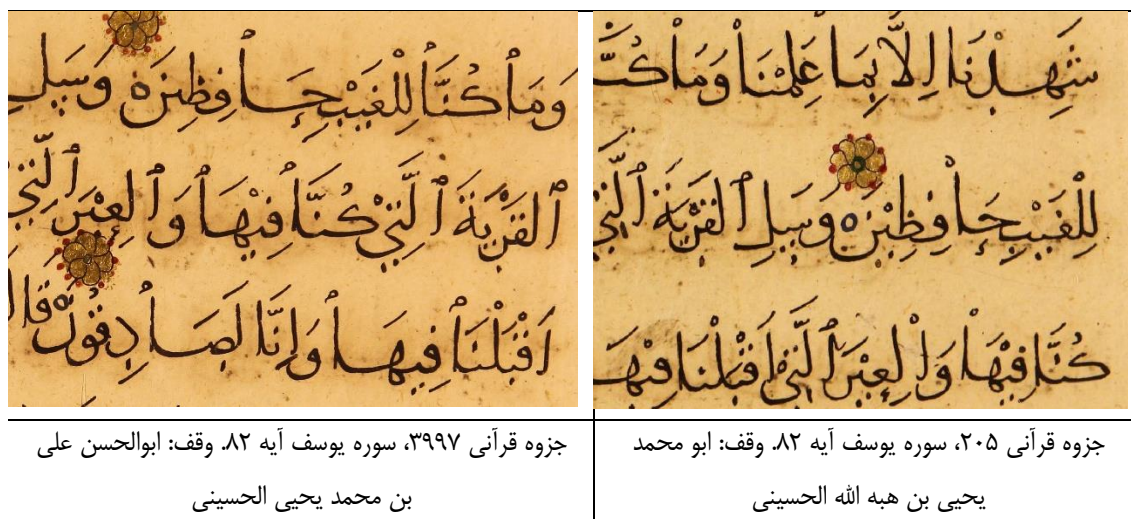 شَهِدْنَا اِلَّا بِمَا عَلِمْنَا وَمَا كُنَّا
لِلْغَيْبِ حَافِظِيْنَ ه وَسَلِ الْقَرْيَةَ الَّتِيْ
كُنَّا فِيْهَا وَالْعِيْرَ الَّتِيْ اَقْبَلْنَا فِيْهَا
جزوه قرآنی ۲۰۵، سوره یوسف آیه ۸۲. وقف: ابو محمد
یحیی بن هبه الله الحسینی
وَمَا كُنَّا لِلْغَيْبِ حَافِظِيْنَ ه وَسَلِ
الْقَرْيَةَ الَّتِيْ كُنَّا فِيْهَا وَالْعِيْرَ الَّتِيْ
اَقْبَلْنَا فِيهَا وَاِنَّا لَصَادِقُوْنَ ه قال
جزوه قرآنی ۳۹۹۷، سوره یوسف آیه ۸۲. وقف: ابوالحسن علی
بن محمد یحیی الحسینی